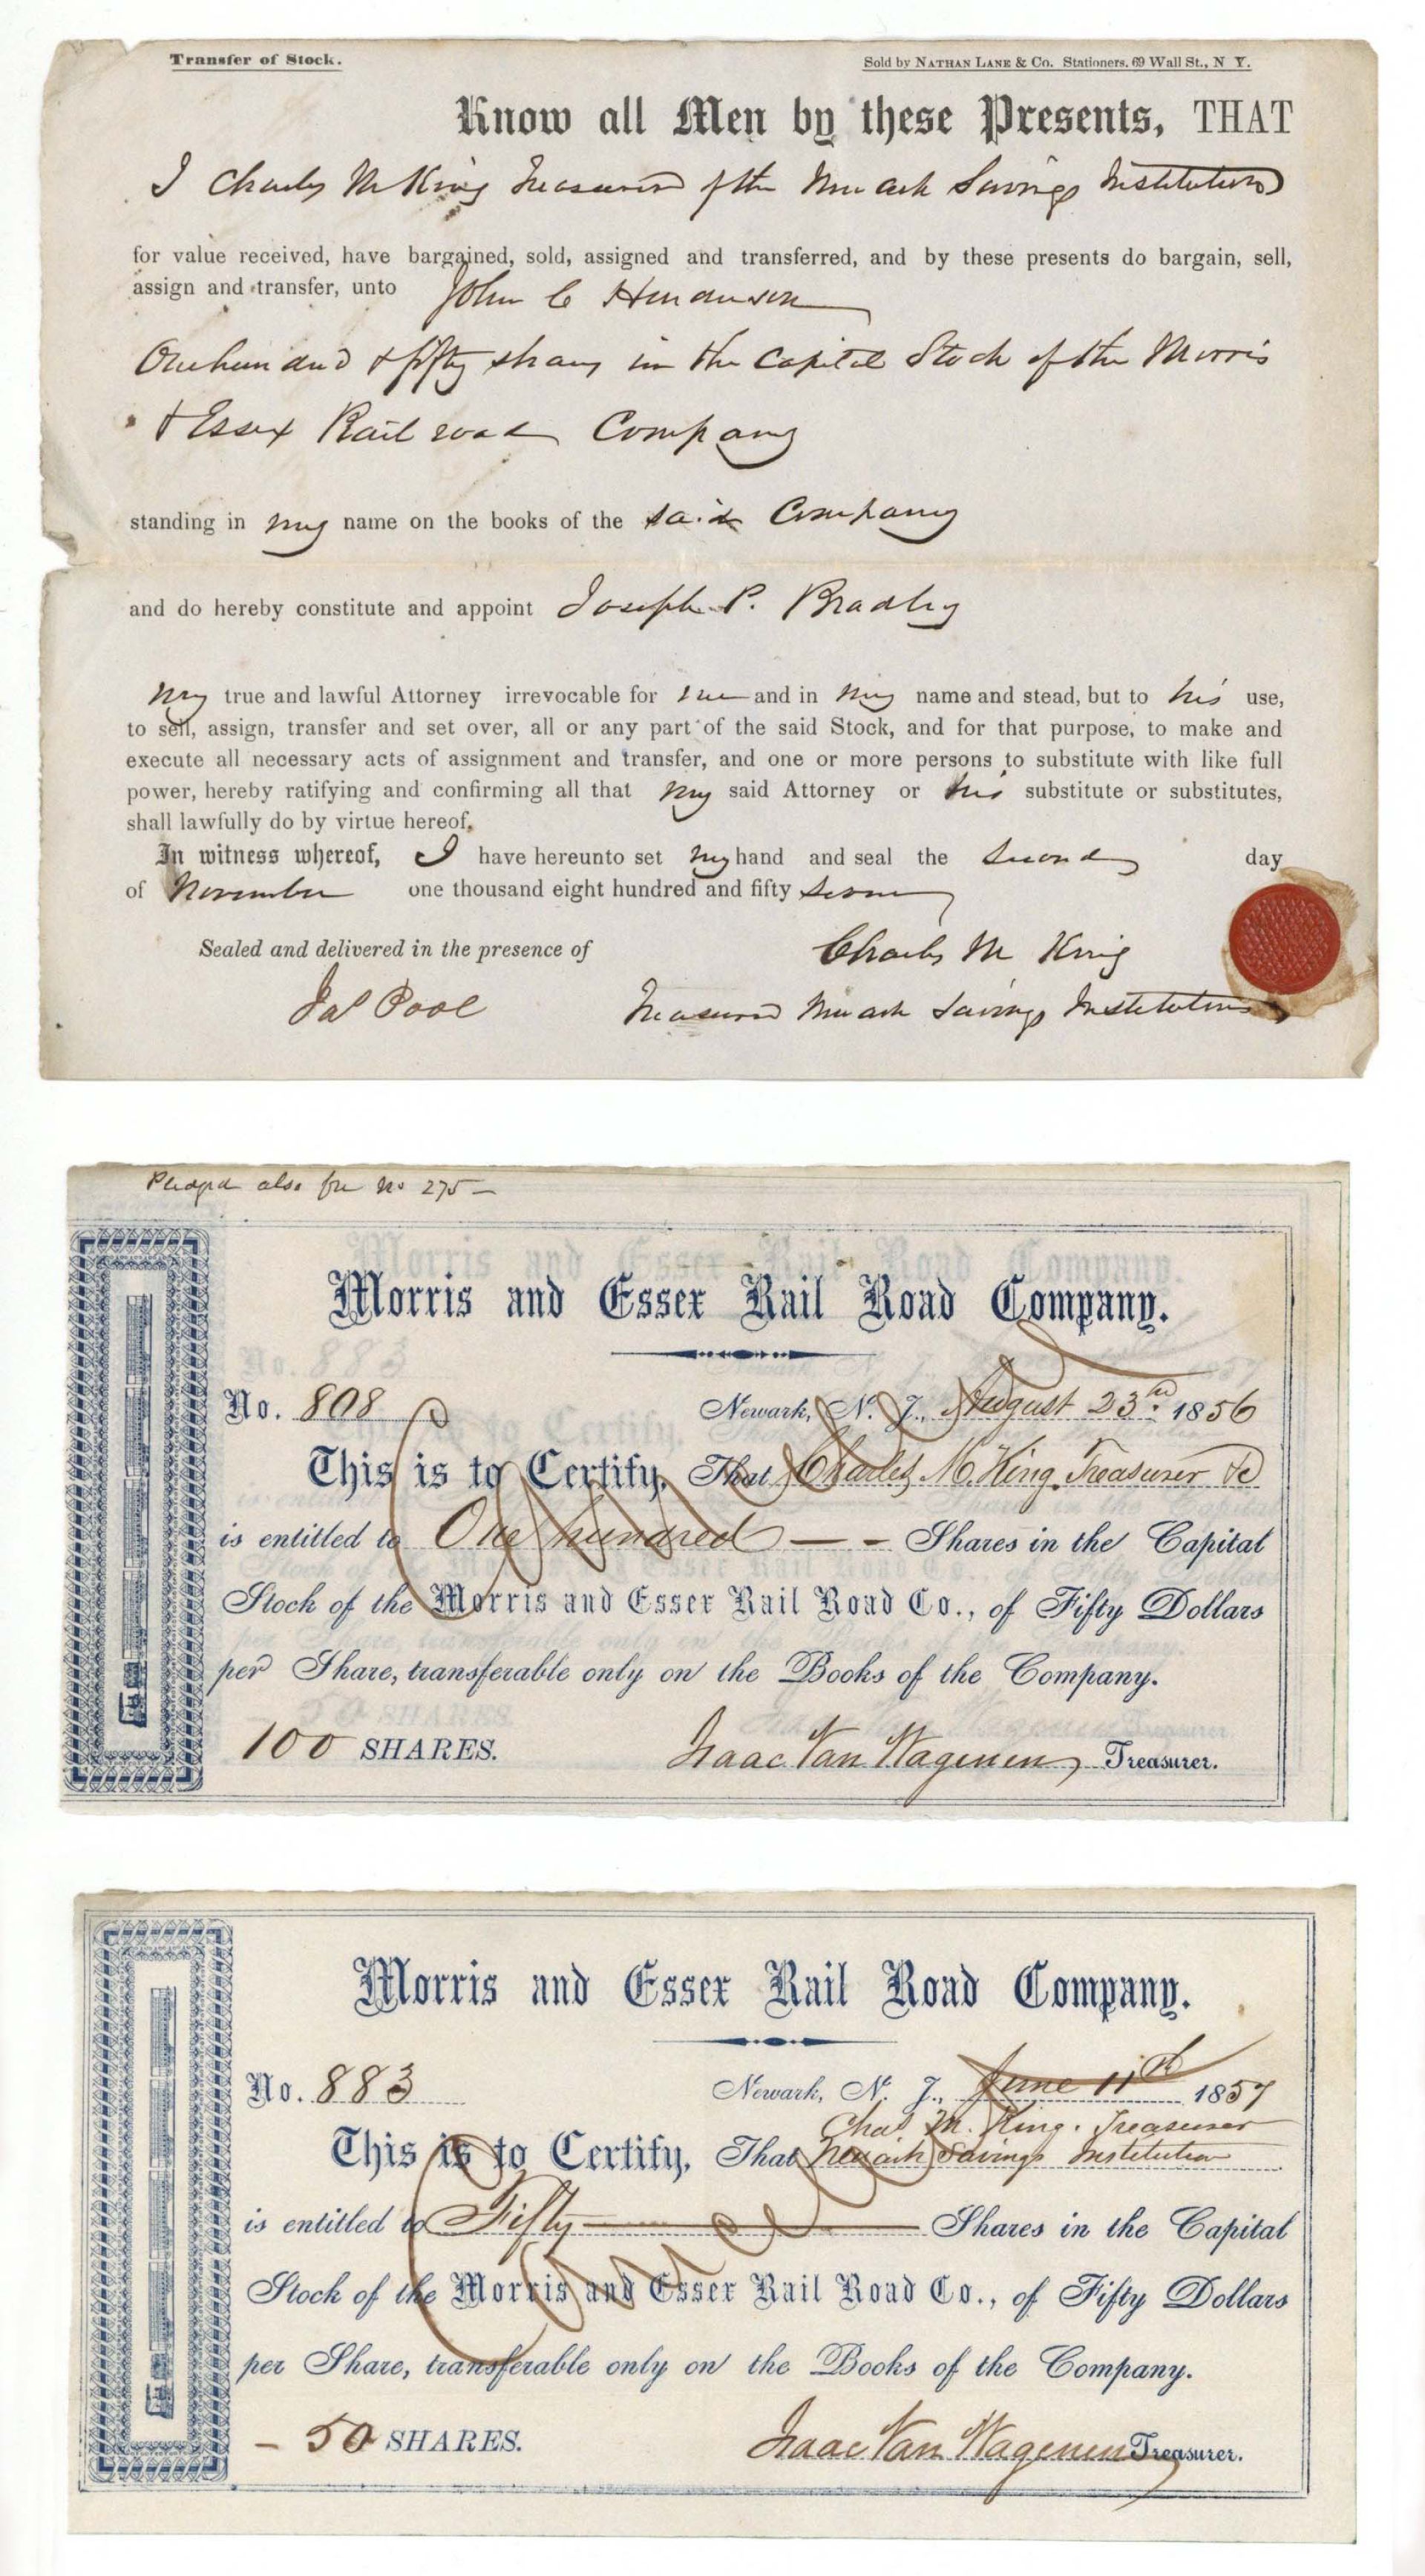 Transfer of Stock.
Sold by NATHAN LANE & Co. Stationers. 69 Wall St., N Y.
Know all Men by these Presents, THAT
I Charles M King Treasurer of the Newark Savings Institution
for value received, have bargained, sold, assigned and transferred, and by these presents do bargain, sell,
assign and transfer, unto John C Henderson
One hundred & fifty shares in the Capital Stock of the Morris
& Essex Rail road Company
standing in my name on the books of the said Company
and do hereby constitute and appoint Joseph P. Bradley
my true and lawful Attorney irrevocable for me and in my name and stead, but to his use,
to sell, assign, transfer and set over, all or any part of the said Stock, and for that purpose, to make and
execute all necessary acts of assignment and transfer, and one or more persons to substitute with like full
power, hereby ratifying and confirming all that my said Attorney or his substitute or substitutes,
shall lawfully do by virtue hereof.
In witness whereof, I have hereunto set my hand and seal the second day
of November one thousand eight hundred and fifty seven
Sealed and delivered in the presence of
Charles M King
Jas Pool
Treasurer Newark Savings Institution
Pledged also for No 275 —
Morris and Essex Rail Road Company.
No. 808
Newark, N. J., August 23rd. 1856
This is to Certify, That Charles M. King. Treasurer &c
is entitled to One hundred — - Shares in the Capital
Stock of the Morris and Essex Rail Road Co., of Fifty Dollars
per Share, transferable only on the Books of the Company.
100 SHARES.
Isaac Van Wagenen Treasurer.
Cancelled
Morris and Essex Rail Road Company.
No. 883
Newark, N. J., June 11th 1857
Chas. M. King. Treasurer
This is to Certify, That Newark Savings Institution
is entitled to Fifty — Shares in the Capital
Stock of the Morris and Essex Rail Road Co., of Fifty Dollars
per Share, transferable only on the Books of the Company.
- 50 SHARES.
Isaac Van Wagenen Treasurer.
Cancelled